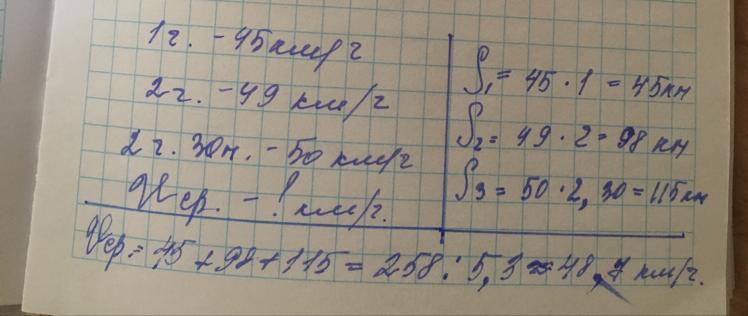 1 ч. - 45 км/ч
2 ч. - 49 км/ч
2 ч. 30 м. - 50 км/ч
Vср. - ! км/ч.
S1 = 45 · 1 = 45 км
S2 = 49 · 2 = 98 км
S3 = 50 · 2,30 = 115 км
Vср = 45 + 98 + 115 = 258 : 5,3 ≈ 48,7 км/ч.